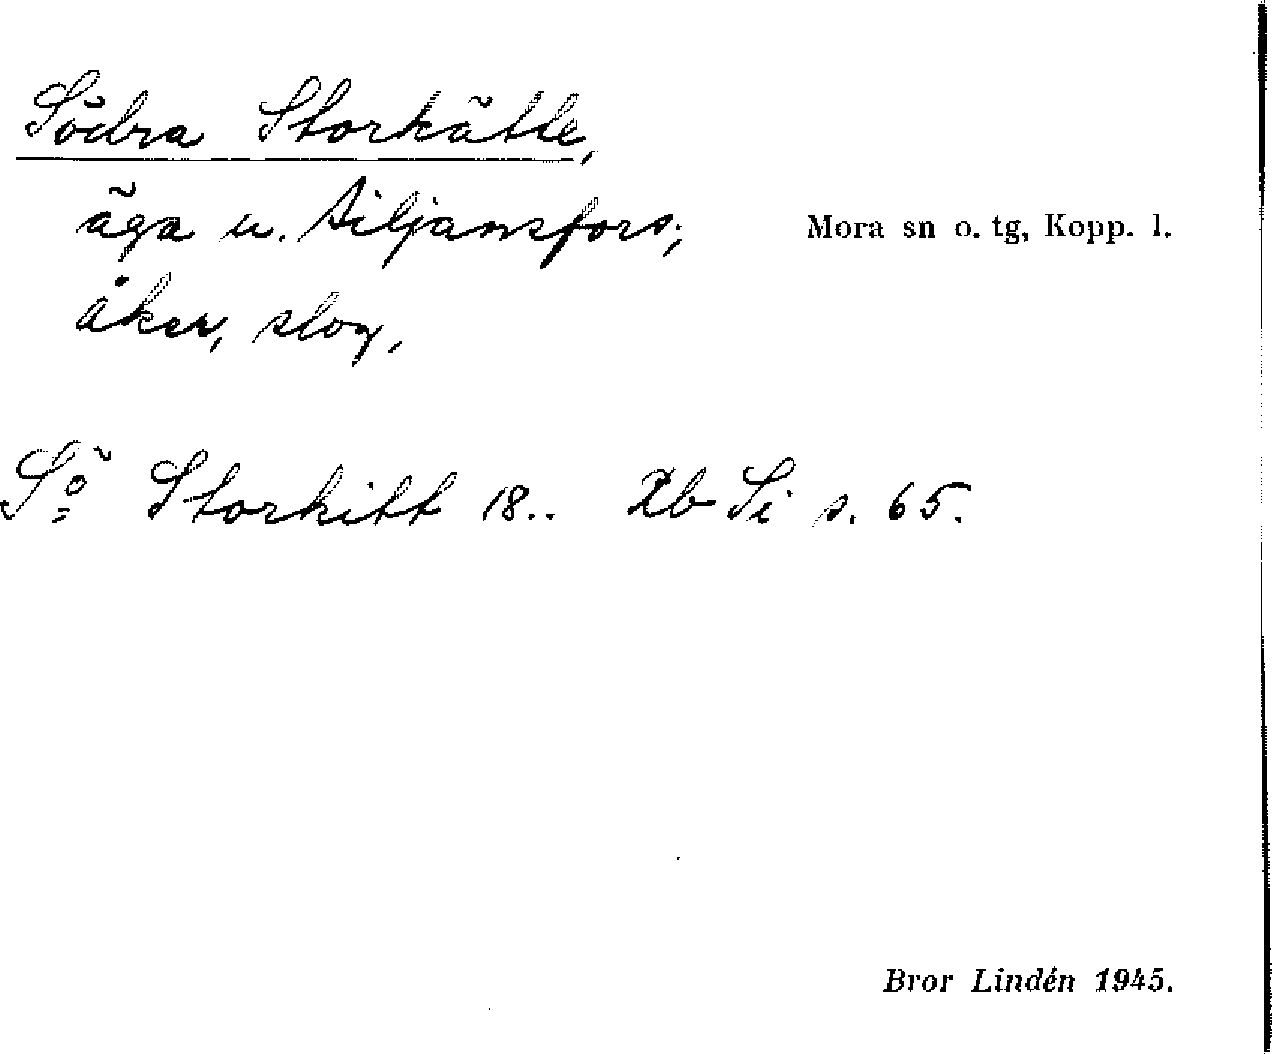 Södra Storkätte,
äga u. Siljansfors;
Mora sn o. tg, Kopp. l.
åker, slog,
Sö Storkitt 18.. Rb Si s. 65.
Bror Lindén 1945.